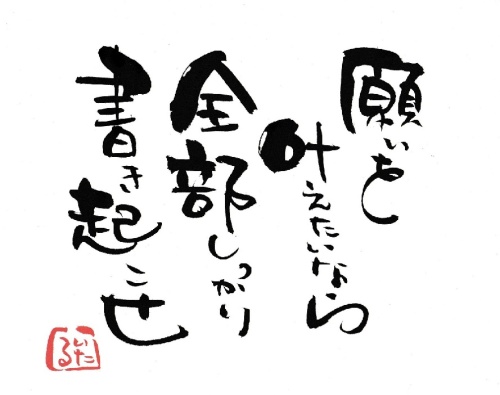 願いを
叶えたいなら
全部しっかり
書き起こせ